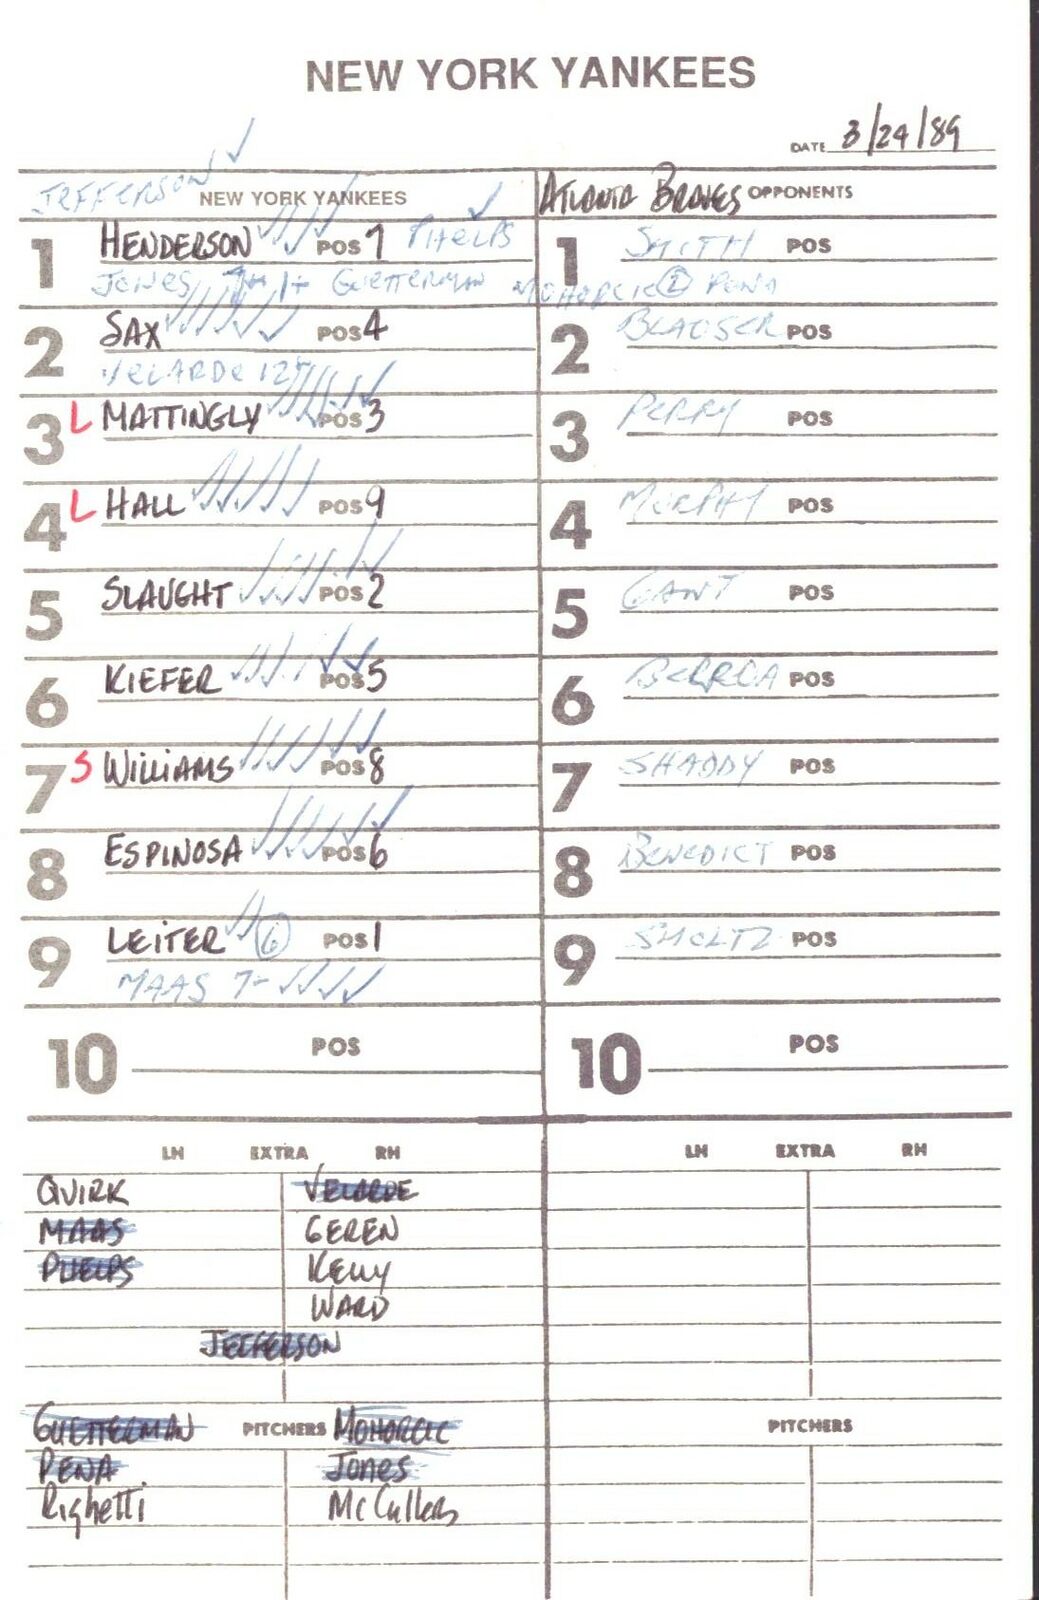 NEW YORK YANKEES
DATE 3/24/89
JEFFERSON NEW YORK YANKEES
ATLANTA BRAVES OPPONENTS
1 HENDERSON POS 7 PHELPS
JONES GUETTERMAN MOHORCIC PENA
2 SAX POS 4
VELARDE 12
3 L MATTINGLY POS 3
4 L HALL POS 9
5 SLAUGHT POS 2
6 KIEFER POS 5
7 S WILLIAMS POS 8
8 ESPINOSA POS 6
9 LEITER 6 POS 1
MAAS 7-
10 POS
1 SMITH POS
2 BLAUSER POS
3 PERRY POS
4 MURPHY POS
5 GANT POS
6 BERROA POS
7 SHADDY POS
8 BENEDICT POS
9 SMOLTZ POS
10 POS
LH EXTRA RH
QUIRK VELARDE
MAAS GEREN
PHELPS KELLY
WARD
JEFFERSON
GUETTERMAN PITCHERS MOHORCIC
PENA Jones
Righetti McCullers
LH EXTRA RH
PITCHERS